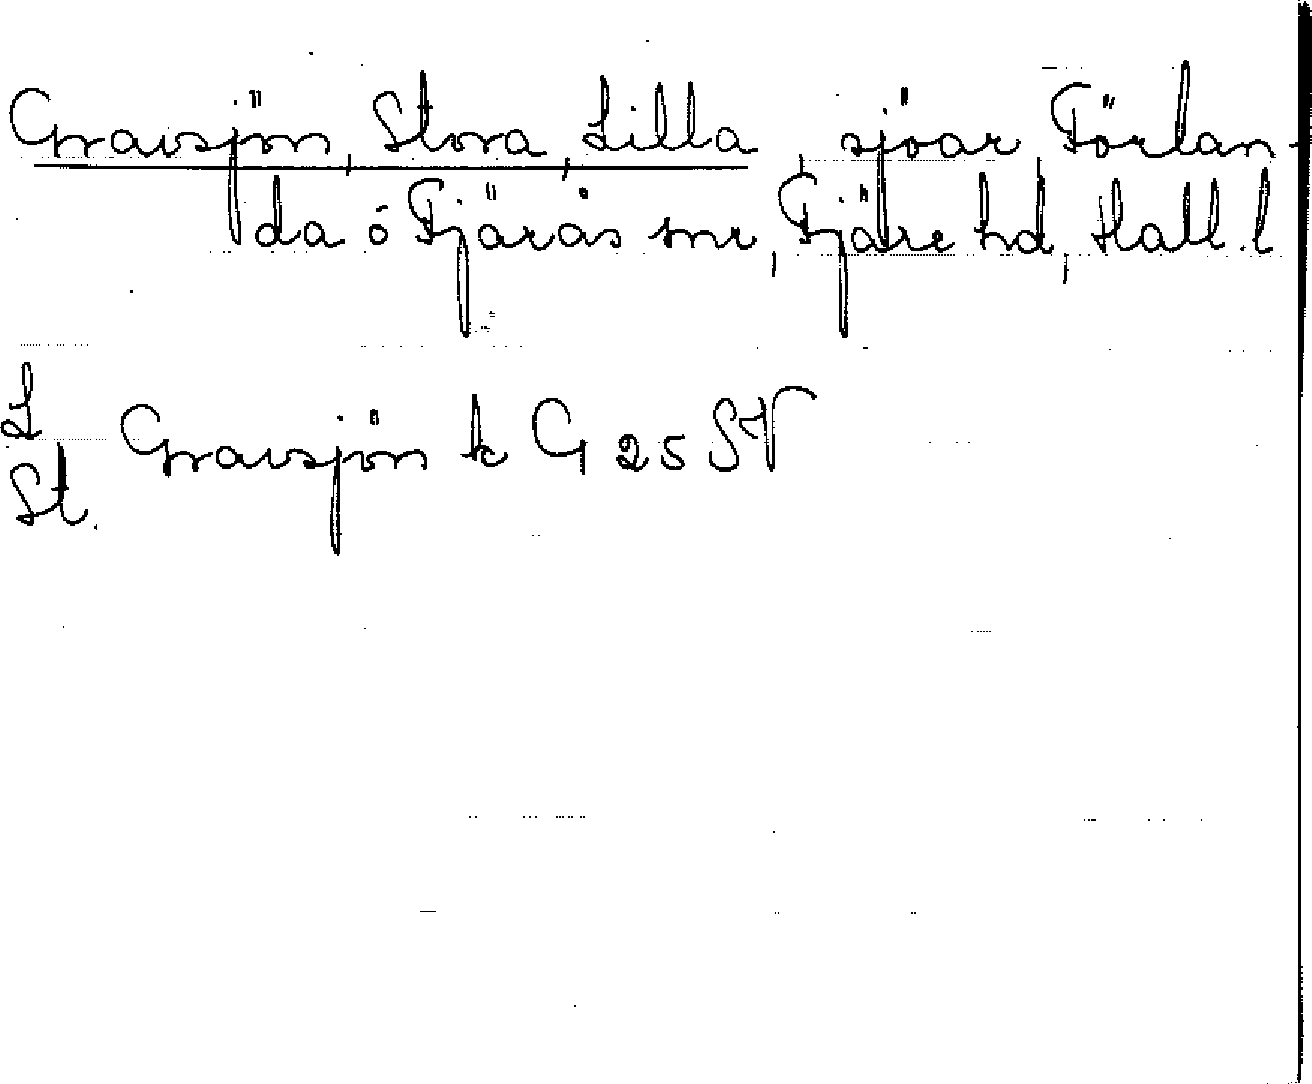 Gravsjön, Stora, Lilla, sjöar, Förlan-
da o Fjärås snr, Fjäre hd, Hall. l
L
St. Gravsjön k G 25 SV